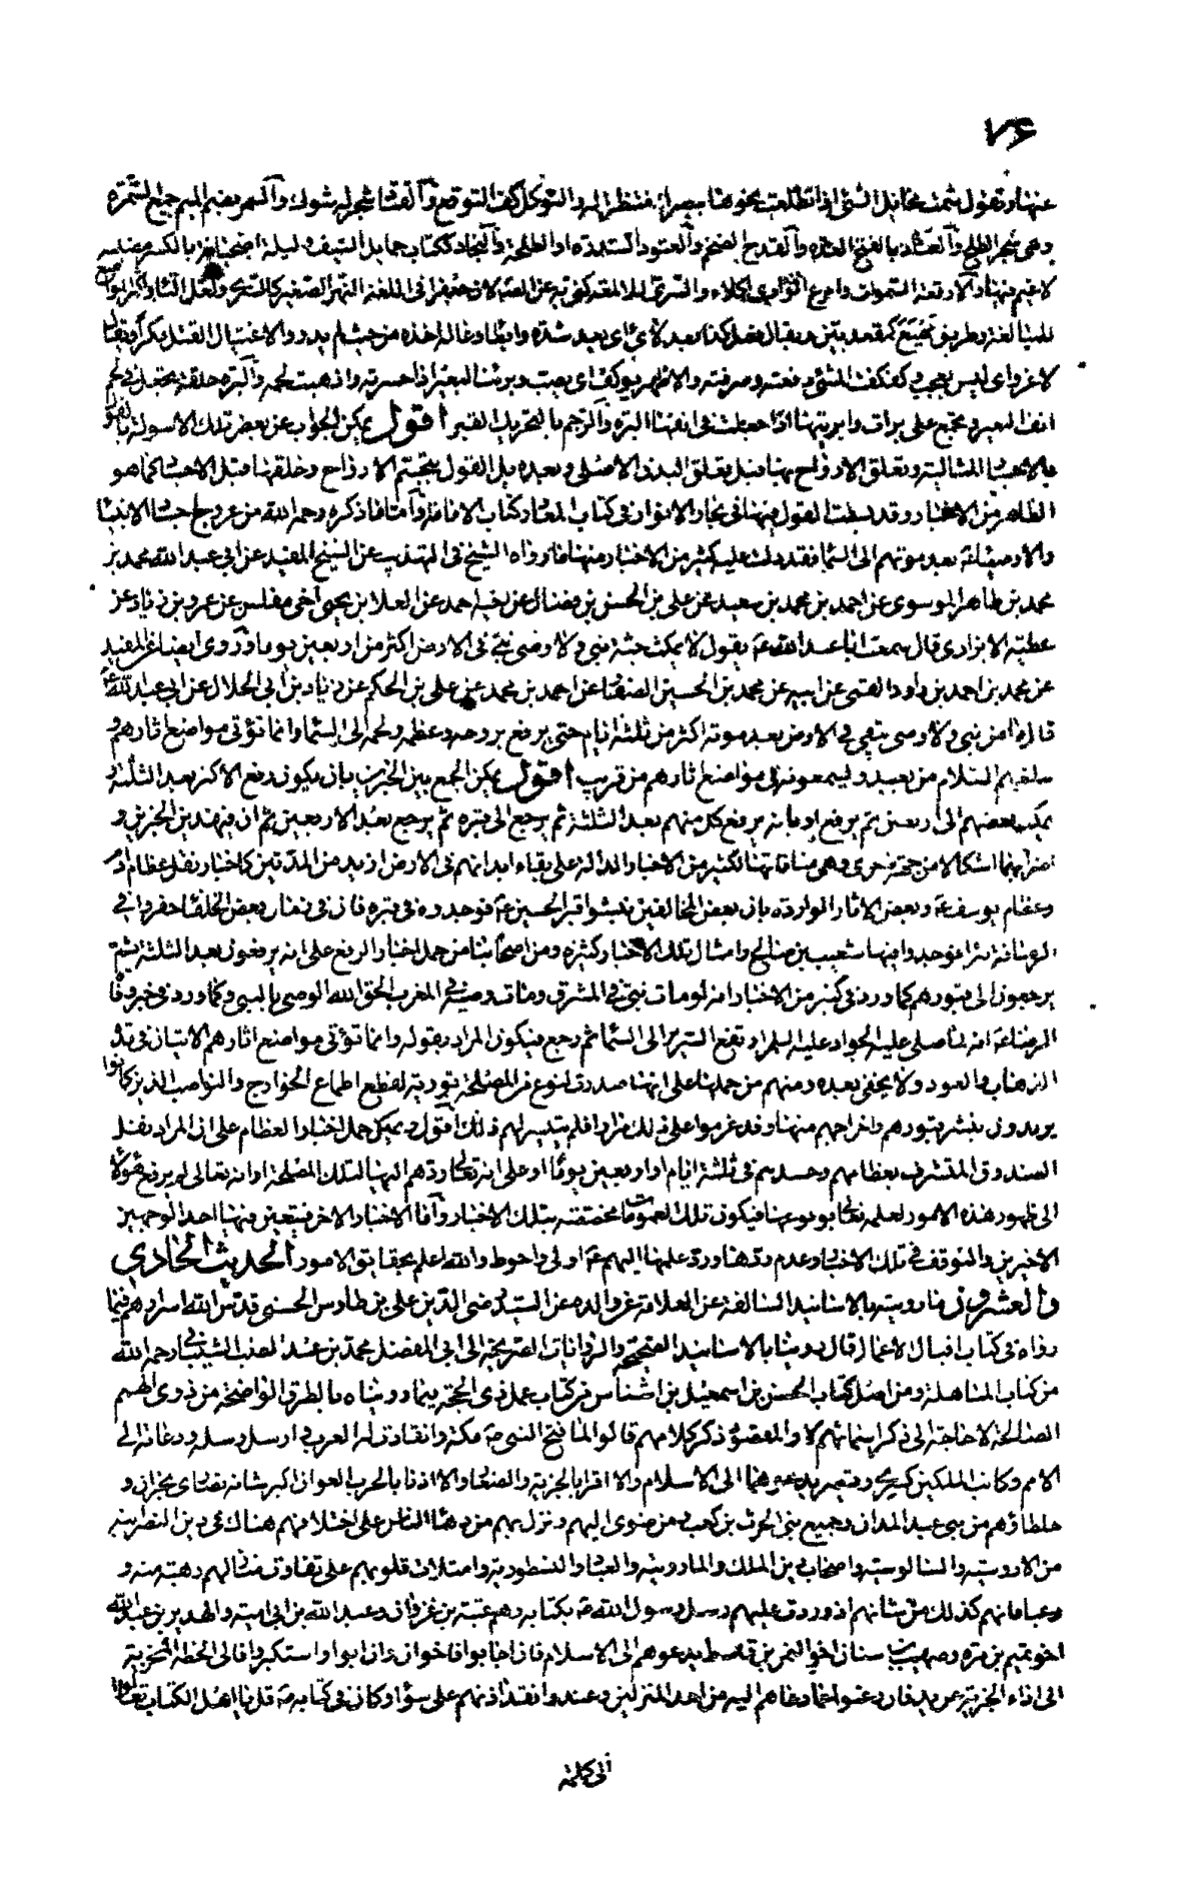 ۷۶
عنها وتقول شمت مخايل الشئ اذا تطلعت نحوها ببصرك منتظرا له والتوكف التوقع والقتاد شجر له شوك والسمر بضم الميم جمع السمرة
وهي شجر الطلح والعتاد بالفتح العدة والقدح الضخم والعتود السدرة او الطلحة والنجاد ككتاب حمايل السيف وليلة اضحيانة بالكسر مضيئة
لا غيم فيها والارقعة السموات وامرع الوادي اكلاء والسري
للمبالغة وطريق مهيع كمقعد بين ويقال فعل كذا بعد لأي اي بعد شدة وابطاء وغاله اخذه من حيث لم يدر والاغتيال القتل
لا غرو اي ليس بعجب وكفكفت الشئ دفعته وصرفته وبرئت البعير اذا حسرته واذهبت لحمه والبرة حلقة تجعل في لحم
انف البعير وتجمع على برات وابريتها اذا جعلت في انفها البرة والرجم بالتحريك القبر اقول يمكن الجواب عن بعض تلك الاسولة بالقول
بالاجساد المثالية وتعلق الارواح بها قبل تعلق البدن الاصلي وبعده بل القول بتجسم الارواح وخلقها قبل الاجساد كما هو
الظاهر من الاخبار وقد بسطت القول فيها في بحار الانوار في كتاب المعاد وكتاب الامامة واما ما ذكره رحمه الله من عروج اجساد الانبيا
والاوصياء بعد موتهم الى السما فقد دلت عليه كثير من الاخبار منها ما رواه الشيخ في التهذيب عن الشيخ المفيد عن ابي عبد الله محمد بن
محمد بن طاهر الموسوي عن احمد بن محمد بن سعيد عن علي بن الحسن بن فضال عن اخيه احمد عن العلا بن يحيى اخي مغلس عن عمرو بن زياد عن
عطية الابزاري قال سمعت ابا عبد الله ع يقول لا يمكث جثة نبي ولا وصي نبي في الارض اكثر من اربعين يوما وروى ايضا عن المفيد
عن محمد بن احمد بن داود القمي عن ابيه عن محمد بن الحسين الصفار عن احمد بن محمد عن علي بن الحكم عن زياد بن ابي الحلال عن ابي عبد الله ع
قال ما من نبي ولا وصي يبقى في الارض بعد موته اكثر من ثلثة ايام حتى يرفع بروحه وعظمه ولحمه الى السما وانما تؤتى مواضع اثارهم و
يبلغهم السلام من بعيد ويسمعونه في مواضع اثارهم من قريب اقول يمكن الجمع بين الخبرين بان يكون رفع الاكثر بعد الثلثة و
يمكث بعضهم الى اربعين ثم يرفع او بانه يرفع كل منهم بعد الثلثة ثم يرجع الى قبره ثم يرجع بعد الاربعين ثم ان في هذين الخبرين و
اضرابهما اشكالا من جهة اخرى وهي منافاتها لكثير من الاخبار الدالة على بقاء ابدانهم في الارض ازيد من المدتين كاخبار نقل عظام ادم
وعظام يوسف ع وبعض الاثار الواردة بان بعض المخالفين نبشوا قبر الحسين ع فوجدوه في قبره وان في زمان بعض الخلفا حفروا في
الرصافة بئرا فوجدوا فيها شعيب بن صالح وامثال تلك الاخبار كثيرة ومن اصحابنا من حمل اخبار الرفع على انه يرفعون بعد الثلثة ثم
يرجعون الى قبورهم كما ورد في كثير من الاخبار انه لو مات نبي في المشرق ومات وصيه في المغرب الحق الله الوصي بالنبي وكما ورد في خبر وفاة
الرضا ع انه لما صلى عليه الجواد عليه السلام ارتفع السرير الى السما ثم رجع فيكون المراد بقوله وانما تؤتى مواضع اثارهم الاتيان في مدة
الذهاب والعود ولا يخفى بعده ومنهم من حملها على انها صدرت لنوع من المصلحة تورية لقطع اطماع الخوارج والنواصب الذين كانوا
يريدون نبش قبورهم واخراجهم منها وقد عزموا على ذلك مرارا فلم يتيسر لهم ذلك اقول ويمكن حمل اخبار العظام على ان المراد بنقل
الصندوق المتشرف بعظامهم وجسدهم في ثلثة ايام او اربعين يوما او على انه تعالى ردهم اليها لتلك المصلحة او انه تعالى لم يرفع هؤلاء
الى ظهور هذه الامور لعلمه تعالى بوقوعها فيكون تلك العمومات مخصصة بتلك الاخبار واما الاخبار الاخر فيتعين فيها احد الوجهين
الاخيرين والتوقف في تلك الاخبار وعدم ردها ورد علمها اليهم ع اولى واحوط والله اعلم بحقايق الامور الحديث الحادي
والعشرون ما رويته بالاسانيد السالفة عن العلامة عن والده عن السيد رضي الدين علي بن طاوس الحسني قدس الله اسرارهم فيما
رواه في كتاب اقبال الاعمال قال روينا بالاسانيد الصحيحة والروايات الصريحة الى ابي المفضل محمد بن عبد المطلب الشيباني رحمه الله
من كتاب المباهلة ومن اصل كتاب الحسن بن اسمعيل بن اشناس من كتاب عمل ذي الحجة فيما رويناه بالطرق الواضحة من ذوي الهمم
الصالحة لا حاجة الى ذكر اسمائهم لان المقصود ذكر كلامهم قالوا لما فتح النبي ص مكة وانقادت له العرب وارسل رسله ودعاته الى
الامم وكاتب الملكين كسرى وقيصر يدعوهما الى الاسلام والا اقرا بالجزية والصغار والا اذنا بالحرب العوان اكبر شانه نصارى نجران و
خلطاؤهم من بني عبد المدان وجميع بني الحرث بن كعب ومن ضوى اليهم ونزل بهم من دهماء الناس على اختلافهم هناك في دين النصرانية
من الاروسية والسالوسية واصحاب دين الملك والمارونية والعباد والنسطورية وامتلات قلوبهم على تفاوت منازلهم رهبة منه و
رعبا فانهم كذلك من شانهم اذ وردت عليهم رسل رسول الله ص بكتابه وهم عتبة بن غزوان وعبد الله بن ابي امية والهدير بن عبد الله
اخو تيم بن مرة وصهيب بن سنان اخو النمر بن قاسط يدعوهم الى الاسلام فان اجابوا فاخوان وان ابوا واستكبروا فالى الخطة المخزية
الى اداء الجزية عن يد فان رغبوا عما دعاهم اليه من احد المنزلين وعندوا فقد اذنهم على سواء وكان في كتابه ص قل يا اهل الكتاب تعالوا
الى كلمة